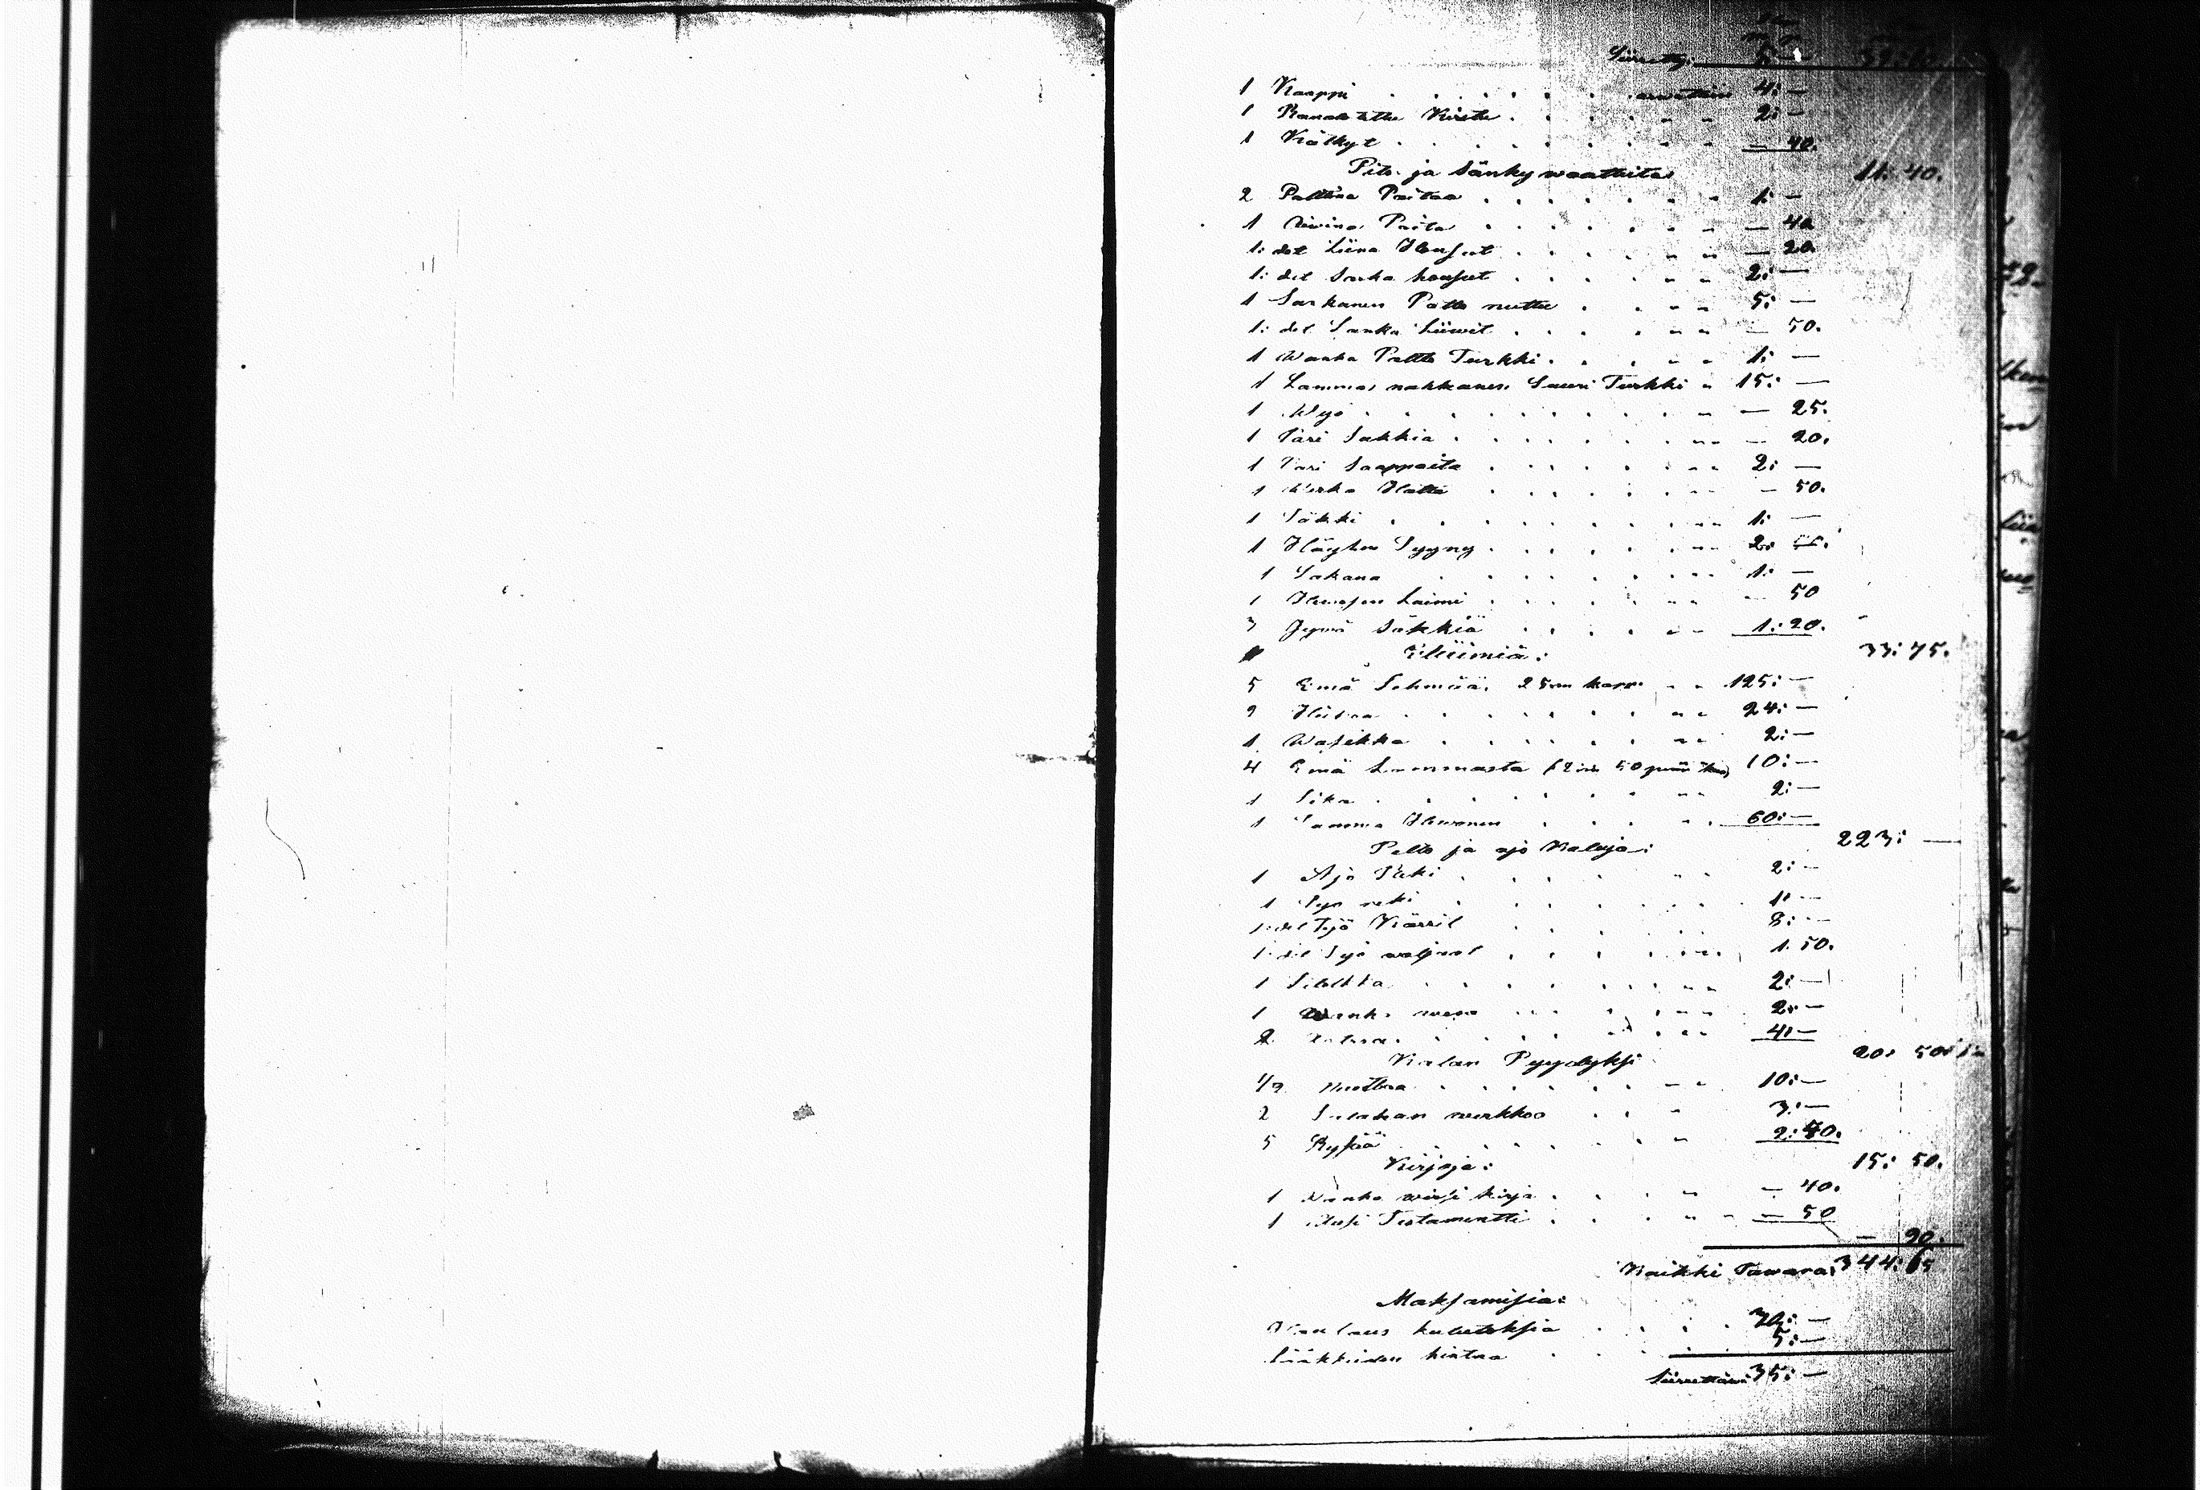 Siirretty:
1 Kaappi . . . . . . . arvattu 4: —
1 Kirstu . . . . . . 2: —
1 Kätkyt . . . . . . . — 40.
Pito ja Sänky waatteita 11: 40.
2 Paitaa . . . . . . 1: —
1 Paita . . . . . . — 40
1: det Liina Housut . . . . . — 20.
1: det Sarka housut . . . . . 2: —
1 Sarkanen Palto nuttu . . . 5: —
1: del Sarka Liiwit . . . . — 50.
1 Wanha Palto Turkki . . . . 1: —
1 Lammas nahkanen Suuri Turkki " 15: —
1 Wyö . . . . . . . . — 25.
1 Pari Sukkia . . . . . . — 20.
1 Pari Saappaita . . . . . 2: —
1 Werka Hattu . . . . . — 50.
1 Säkki . . . . . . . 1: —
1 Höyhen Tyyny . . . . . 2:
1 Lakana . . . . . . 1: —
1 Hewosen Loimi . . . . . — 50
3 Jywä Säkkiä . . . . 1: 20.
Eläimiä: 33: 75.
5 Emä Lehmää, 25 m kappl . . 125: —
2 Hiehoa . . . . . . 24: —
1 Wasikka . . . . . . 2: —
4 Emä Lammasta (2 m 50 penniä kpl) 10: —
1 Sika . . . . . . . 2: —
1 Tamma Hewonen . . . . 60: —
Pelto ja ajo Kaluja: 223: —
1 Ajo Reki . . . . . 2: —
1 Työ reki . . . . . 1: —
1: del Työ Kärrit . . . . 8: —
1: del Työ waljaat . . . . 1. 50.
1 . . . . . . . 2: —
1 . . . . . . 2: —
2 . . . . . . 4: —
Kalan Pyydyksi 20: 50
1/2 Nuottaa . . . . . . 10: —
2 werkkoa . . . 3: —
5 Rysää . . . . . . 2: 50.
Kirjoja: 15: 50.
1 Wanha wirsi kirja . . . . — 40.
1 Uusi Testamentti . . . . — 50
— 90.
Kaikki Tawara: 344: 65
Maksamisia:
Hautaus kulutuksia . . . . 30: —
Lääkkeiden hintaa . . . . 5: —
Siirrettävä 35: —